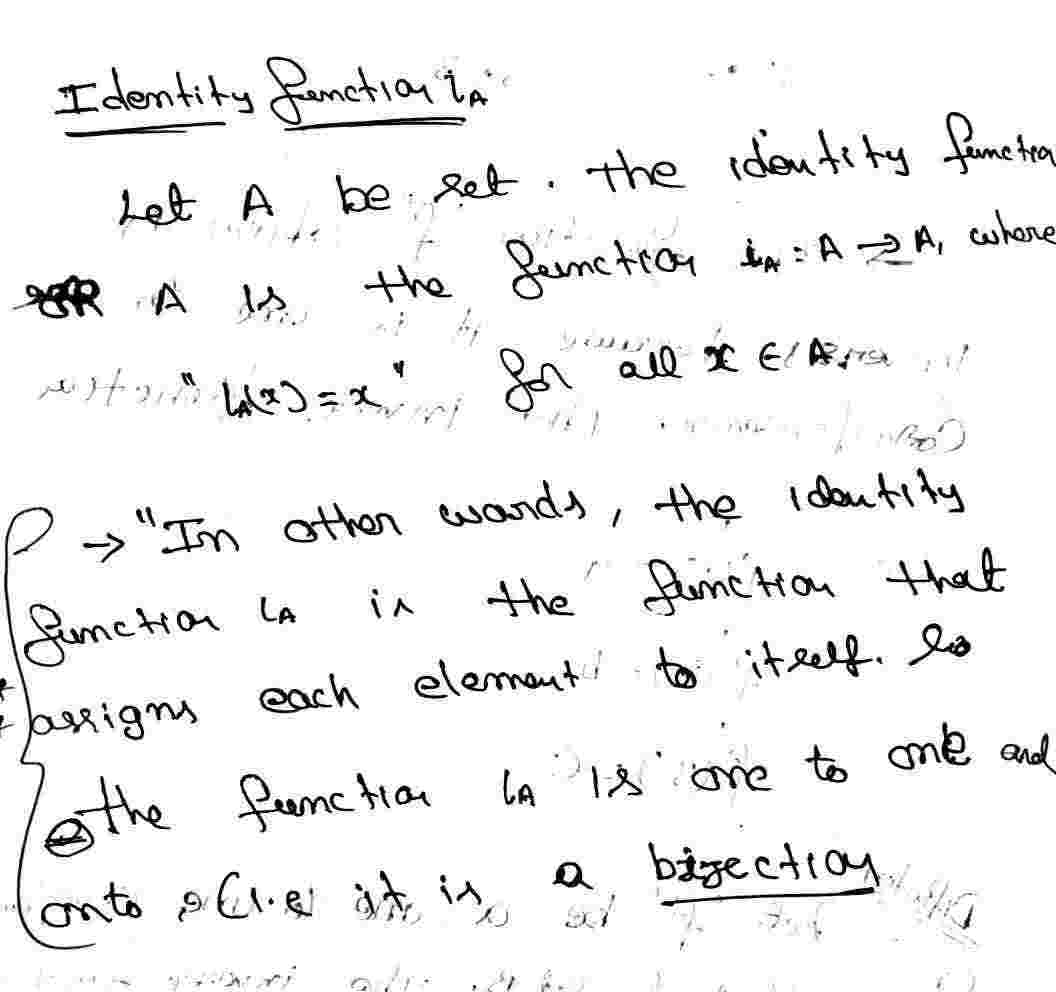 Identity function i_A
Let A be set. the identity function
A is the function i_A : A → A, where
"i_A(x) = x" for all x ∈ A.
→ "In other words, the identity
function i_A is the function that
assigns each element to itself. So
the function i_A is one to one and
onto, (i.e it is a bijection